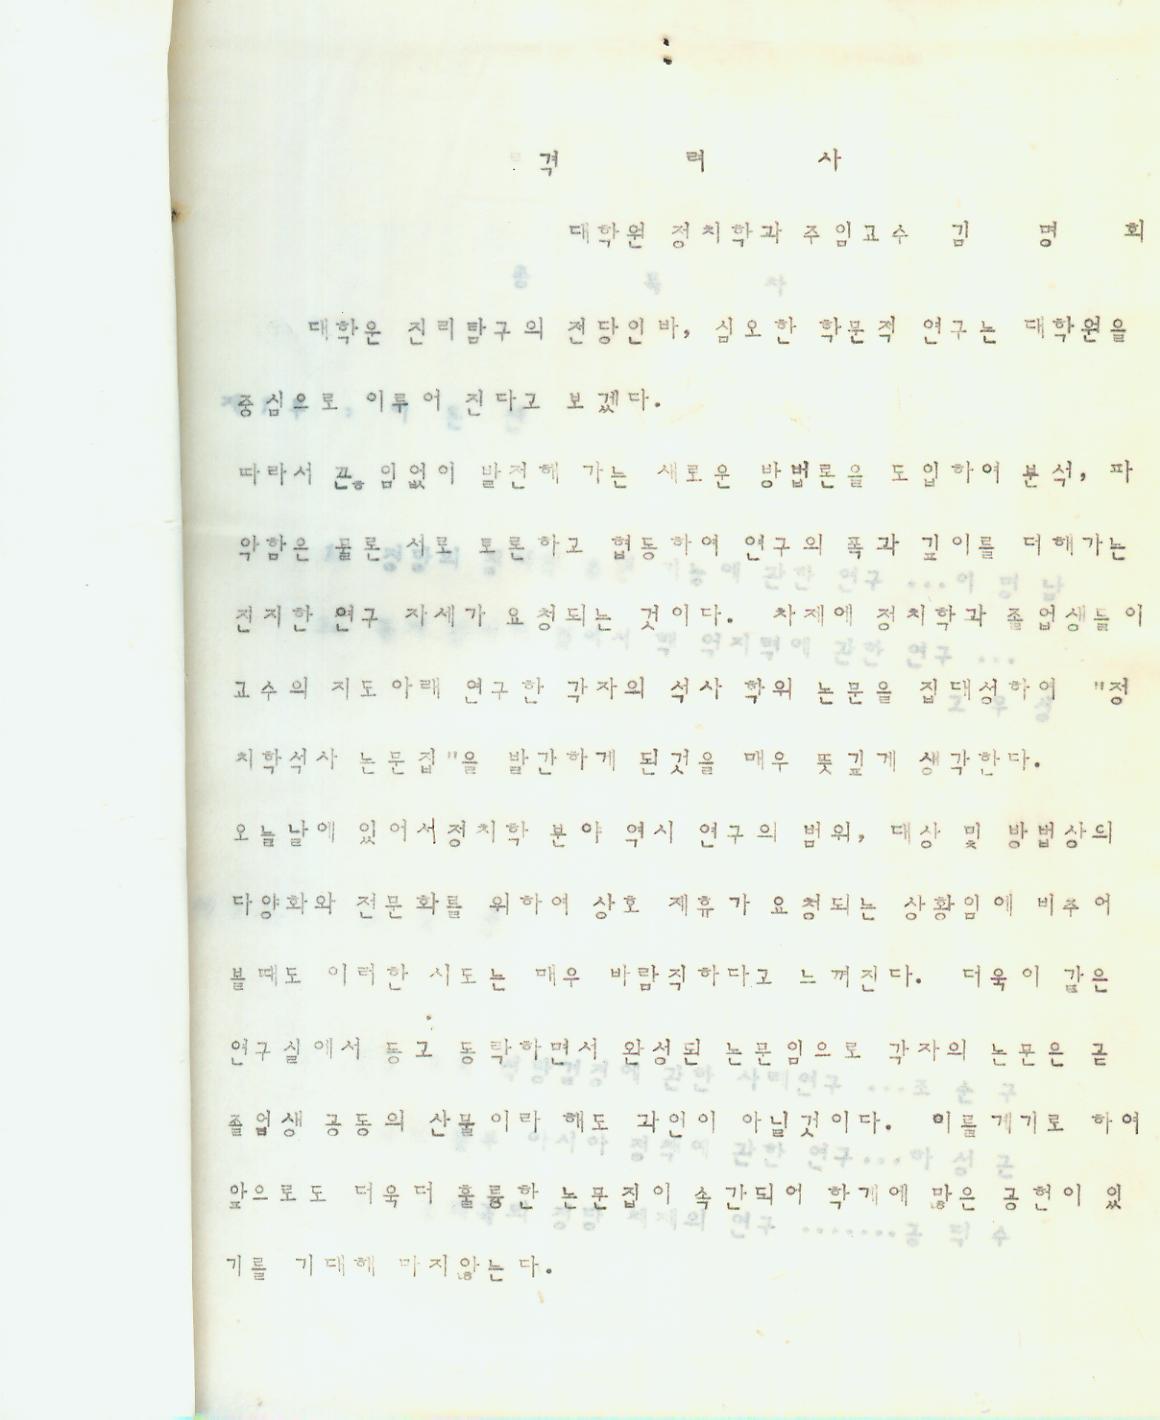 격 려 사
대학원 정치학과 주임교수 김 명 회
대학은 진리탐구의 전당인바, 심오한 학문적 연구는 대학원을
중심으로 이루어 진다고 보겠다.
따라서 끈임없이 발전해 가는 새로운 방법론을 도입하여 분석, 파
악함은 물론 서로 토론하고 협동하여 연구의 폭과 깊이를 더해가는
진지한 연구 자세가 요청되는 것이다. 차제에 정치학과 졸업생들이
교수의 지도아래 연구한 각자의 석사 학위 논문을 집대성하여 "정
치학석사 논문집"을 발간하게 된것을 매우 뜻깊게 생각한다.
오늘날에 있어서정치학 분야 역시 연구의 범위, 대상 및 방법상의
다양화와 전문화를 위하여 상호 제휴가 요청되는 상황임에 비추어
볼때도 이러한 시도는 매우 바람직하다고 느껴진다. 더욱이 같은
연구실에서 동고 동락하면서 완성된 논문임으로 각자의 논문은 곧
졸업생 공동의 산물이라 해도 과언이 아닐것이다. 이를계기로 하여
앞으로도 더욱더 훌륭한 논문집이 속간되어 학계에 많은 공헌이 있
기를 기대해 마지않는다.